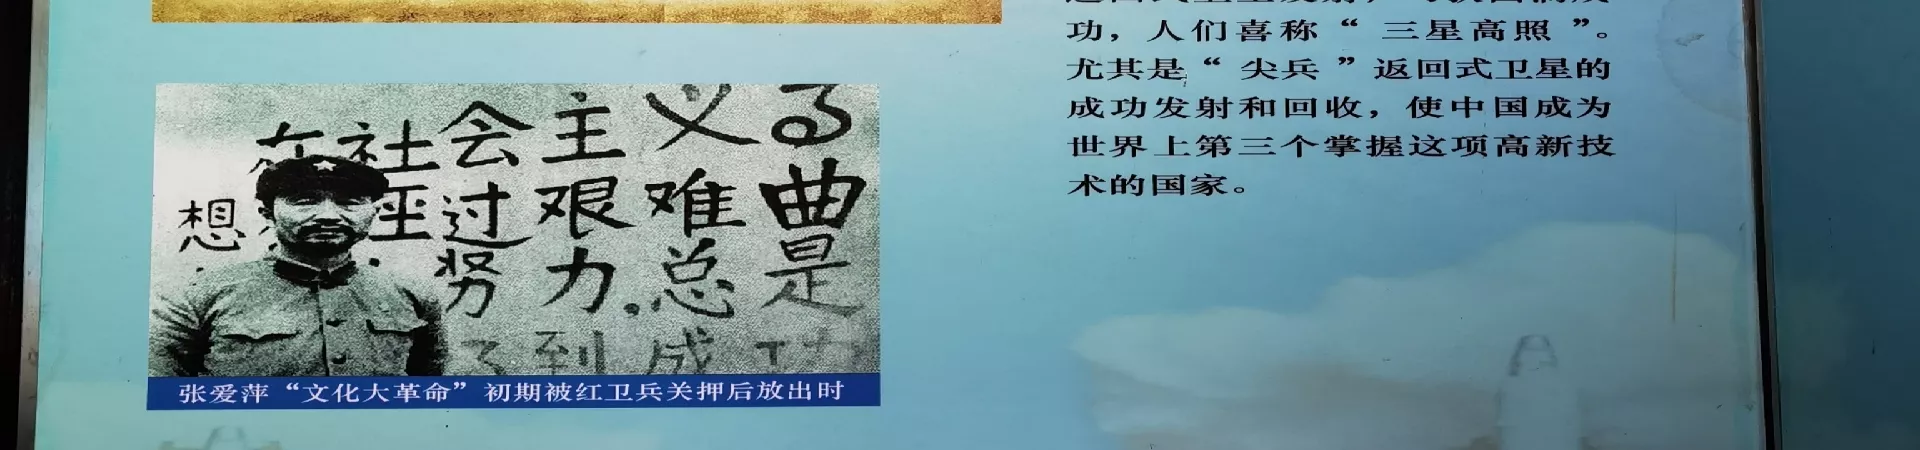 功，人们喜称“三星高照”。
尤其是“尖兵”返回式卫星的
成功发射和回收，使中国成为
世界上第三个掌握这项高新技
术的国家。
在社会主义
过艰难曲
想
努力.总是
到成功
张爱萍“文化大革命”初期被红卫兵关押后放出时